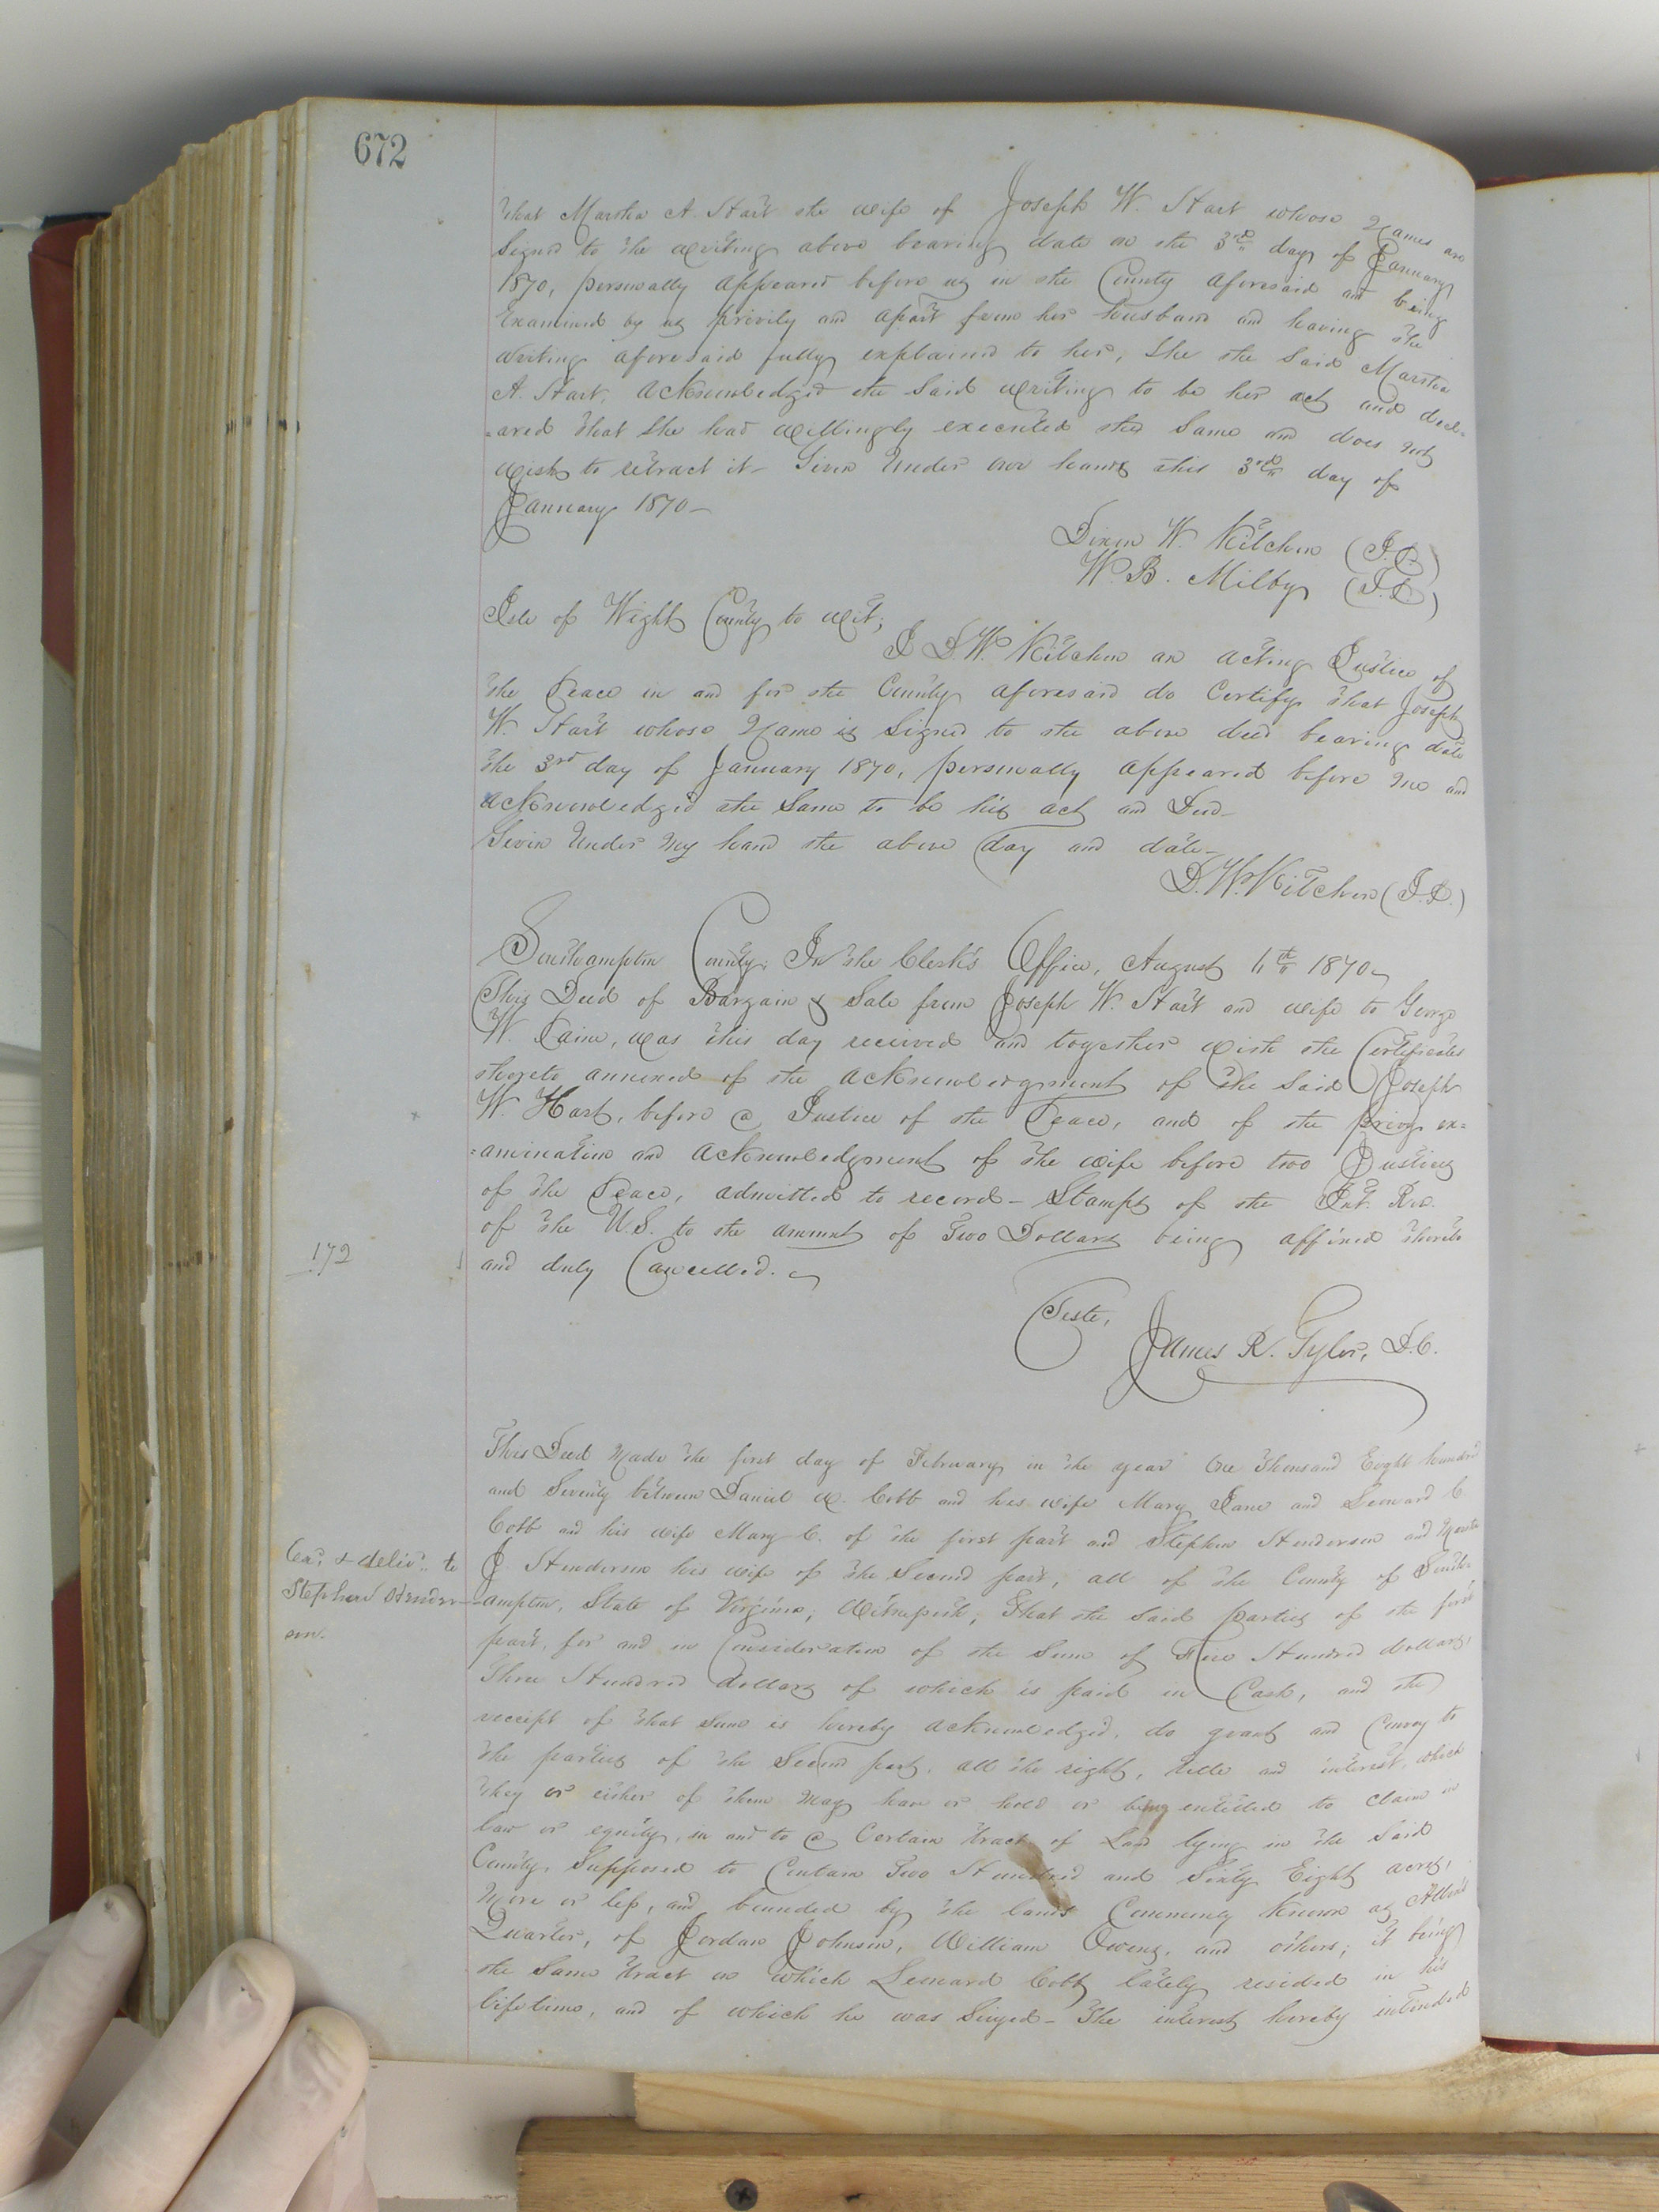 672
that Martha A. Hart the wife of Joseph W. Hart whose Names are
signed to the writing above bearing date on the 3rd day of January
1870, personally appeared before us in the County aforesaid and being
Examined by us privily and apart from her husband and having the
writing aforesaid fully explained to her, She the Said Martha
A. Hart, acknowledged the Said writing to be her act and decl-
=ared that She had willingly executed the Same and does not
wish to retract it - Given Under our hands this 3rd day of
January 1870 -
Dixon W. Kitchen (J.P.)
W. B. Milby (J.P.)
Isle of Wight County to wit;
I D. W. Kitchen an acting Justice of
the Peace in and for the County aforesaid do Certify that Joseph
W. Hart whose Name is Signed to the above deed bearing date
the 3rd day of January 1870, personally appeared before me and
acknowledged the Same to be his act and Deed -
Given Under my hand the above day and date -
D. W. Kitchen (J.P.)
Southampton County: In the Clerk's Office, August 1870
This Deed of Bargain & Sale from Joseph W. Hart and wife to George
W. was this day received and together with the Certificates
thereto annexed of the acknowledgment of the Said Joseph
W. Hart, before a Justice of the Peace, and of the privy ex=
=amination and acknowledgment of the wife before two Justices
of the Peace, admitted to record - Stamps of the Int. Rev.
of the U.S. to the amount of Two Dollars being affixed thereto
172
and duly Cancelled.
Teste,
James R. Tyler, D.C.
This Deed Made the first day of February in the year One Thousand Eight hundred
and Seventy between Daniel W. Cobb and his wife Mary Jane and Leonard C.
Cobb and his wife Mary C. of the first part and Stephen Henderson and
Exd. & delivd. to
Stephen Hender-
son.
J Henderson his wife of the Second part, all of the County of South-
=ampton, State of Virginia; Witnesseth; That the Said parties of the first
part, for and in Consideration of the Sum of Five Hundred dollars,
Three Hundred dollars of which is paid in Cash, and the
receipt of that Sum is hereby acknowledged, do grant and Convey to
the parties of the Second part, all the right, title and interest, which
they or either of them may have or hold or being entitled to claim in
law or equity, in and to a Certain tract of Land lying in the Said
County, Supposed to Contain Two Hundred and Sixty Eight acres,
More or less, and bounded by the lands Commonly Known as Allen's
Quarter, of Jordan Johnson, William Owens, and others; it being
the Same tract on which Leonard Cobb lately resided in his
lifetime, and of which he was Siezed - The interest hereby intended